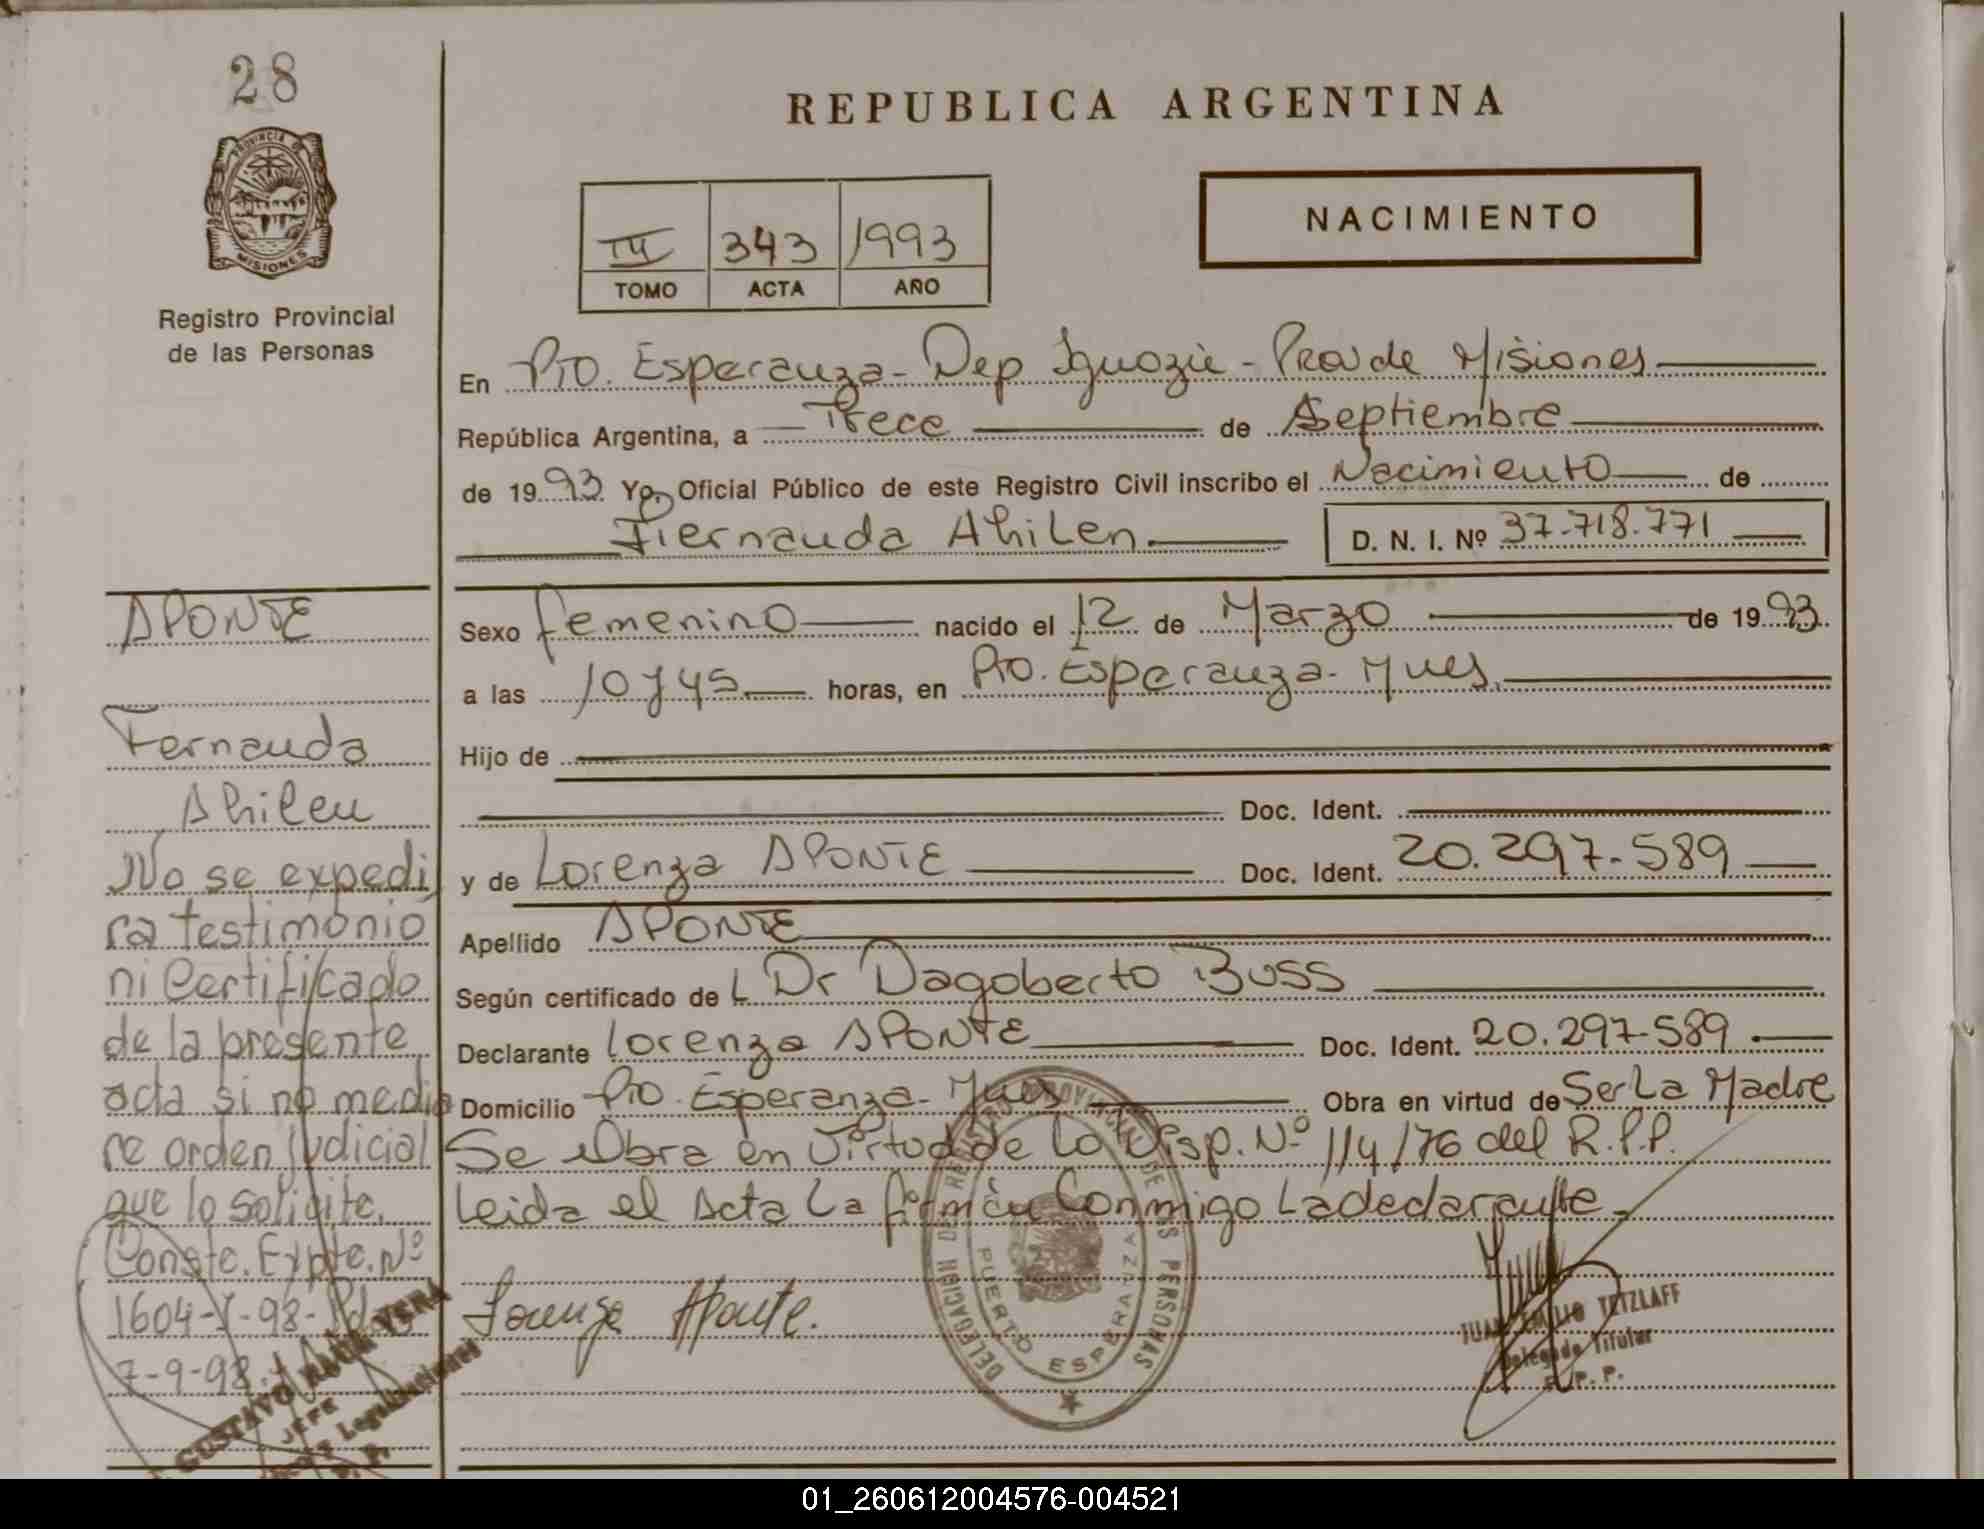 28
PROVINCIA DE
MISIONES
Registro Provincial
de las Personas
REPUBLICA ARGENTINA
III 343 1993
TOMO ACTA AÑO
NACIMIENTO
En Pto. Esperanza - Dep Iguazú - Prov de Misiones
República Argentina, a Trece de Septiembre
de 1993 Yo, Oficial Público de este Registro Civil inscribo el Nacimiento de
Fernanda Ahilen D. N. I. Nº 37.718.771
Sexo femenino nacido el 12 de Marzo de 1993
a las 10 y 45 horas, en Pto. Esperanza - Mnes.
Hijo de
Doc. Ident.
y de Lorenza APONTE Doc. Ident. 20.297.589
Apellido APONTE
Según certificado de L Dr Dagoberto Buss
Declarante Lorenza APONTE Doc. Ident. 20.297.589
Domicilio Pto. Esperanza - Mnes Obra en virtud de Ser La Madre
Se Obra en Virtud de La Disp. Nº 114/76 del R.P.P.
Leida el Acta La firman Conmigo La declarante.
Lorenza Aponte.
DELEGACION DEL REGISTRO PROVINCIAL DE LAS PERSONAS
PUERTO ESPERANZA
JUAN EMILIO TETZLAFF
Delegado Titular
R. P. P.
APONTE
Fernanda
Ahilen
No se expedi
ra testimonio
ni Certificado
de la presente
acta si no media
re orden judicial
que lo solicite.
Conste. Expte. Nº
1604-Y-98-
7-9-98.
GUSTAVO VERA
JEFE
Legalizaciones
01_260612004576-004521